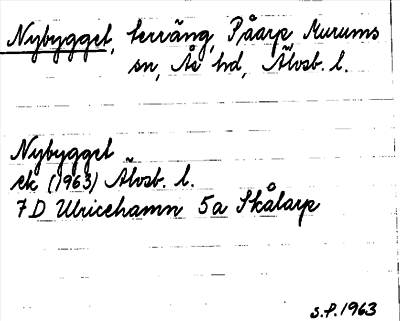 Nybygget, terräng, Påarp Murums
sn, Ås hd, Älvsb. l.
Nybygget
ek (1963) Älvsb. l.
7D Ulricehamn 5a Skålarp
S.P. 1963